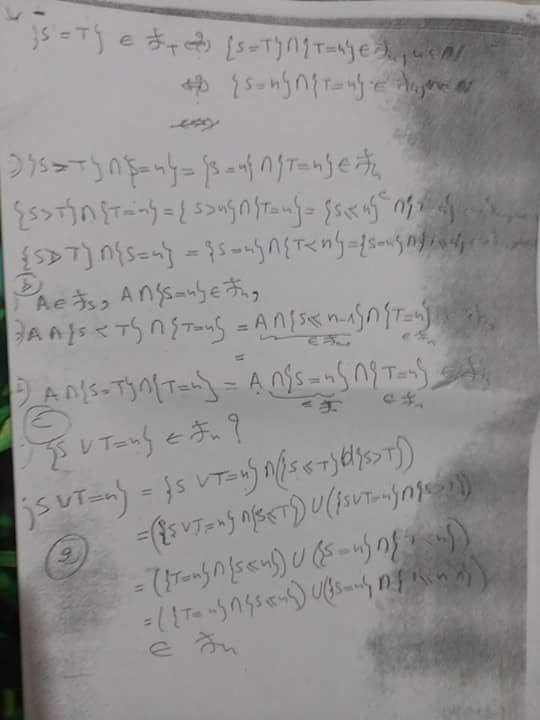 {S=T} ∈ ℱ_T ⇔ {S=T}∩{T=n} ∈ ℱ_n, n∈ℕ
⇔ {S=n}∩{T=n} ∈ ℱ_n, n∈ℕ
⇔
{S=T}∩{S=n} = {S=n}∩{T=n} ∈ ℱ_n
{S>T}∩{T=n} = {S>n}∩{T=n} = {S≤n}^c ∩
{S>T}∩{S=n} = {S=n}∩{T<n} = {S=n}∩
b
A∈ℱ_S, A∩{S=n}∈ℱ_n,
A∩{S<T}∩{T=n} = A∩{S≤n-1}∩{T=n}
∈ℱ_{n-1} ∈ℱ_n
=
A∩{S=T}∩{T=n} = A∩{S=n}∩{T=n} ∈ ℱ_n
∈ℱ_n ∈ℱ_n
C
{S∨T=n} ∈ ℱ_n ?
{S∨T=n} = {S∨T=n}∩({S≤T}∪{S>T})
= ({S∨T=n}∩{S≤T})∪({S∨T=n}∩{S>T})
2
= ({T=n}∩{S≤n})∪({S=n}∩{T<n})
= ({T=n}∩{S≤n})∪({S=n}∩{T≤n-1})
∈ ℱ_n